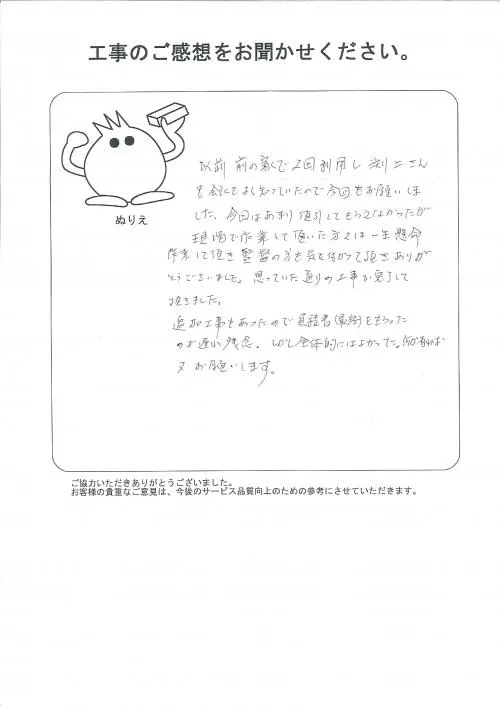 工事のご感想をお聞かせください。
ぬりえ
以前 前の家で2回利用し
をよく知っていたので今回もお願いしま
した。今回はあまり値引してもらえなかったが
現場で作業して頂いた方々は一生懸命
作業して頂き 監督の方も気を付かって頂きありが
とうございました。思っていた通りの工事が完了して
頂きました。
追加工事もあったので見積書(最終)をもらった
のが遅れ残念。しかし全体的にはよかった。何か有れば
又お願いします。
ご協力いただきありがとうございました。
お客様の貴重なご意見は、今後のサービス品質向上のための参考にさせていただきます。